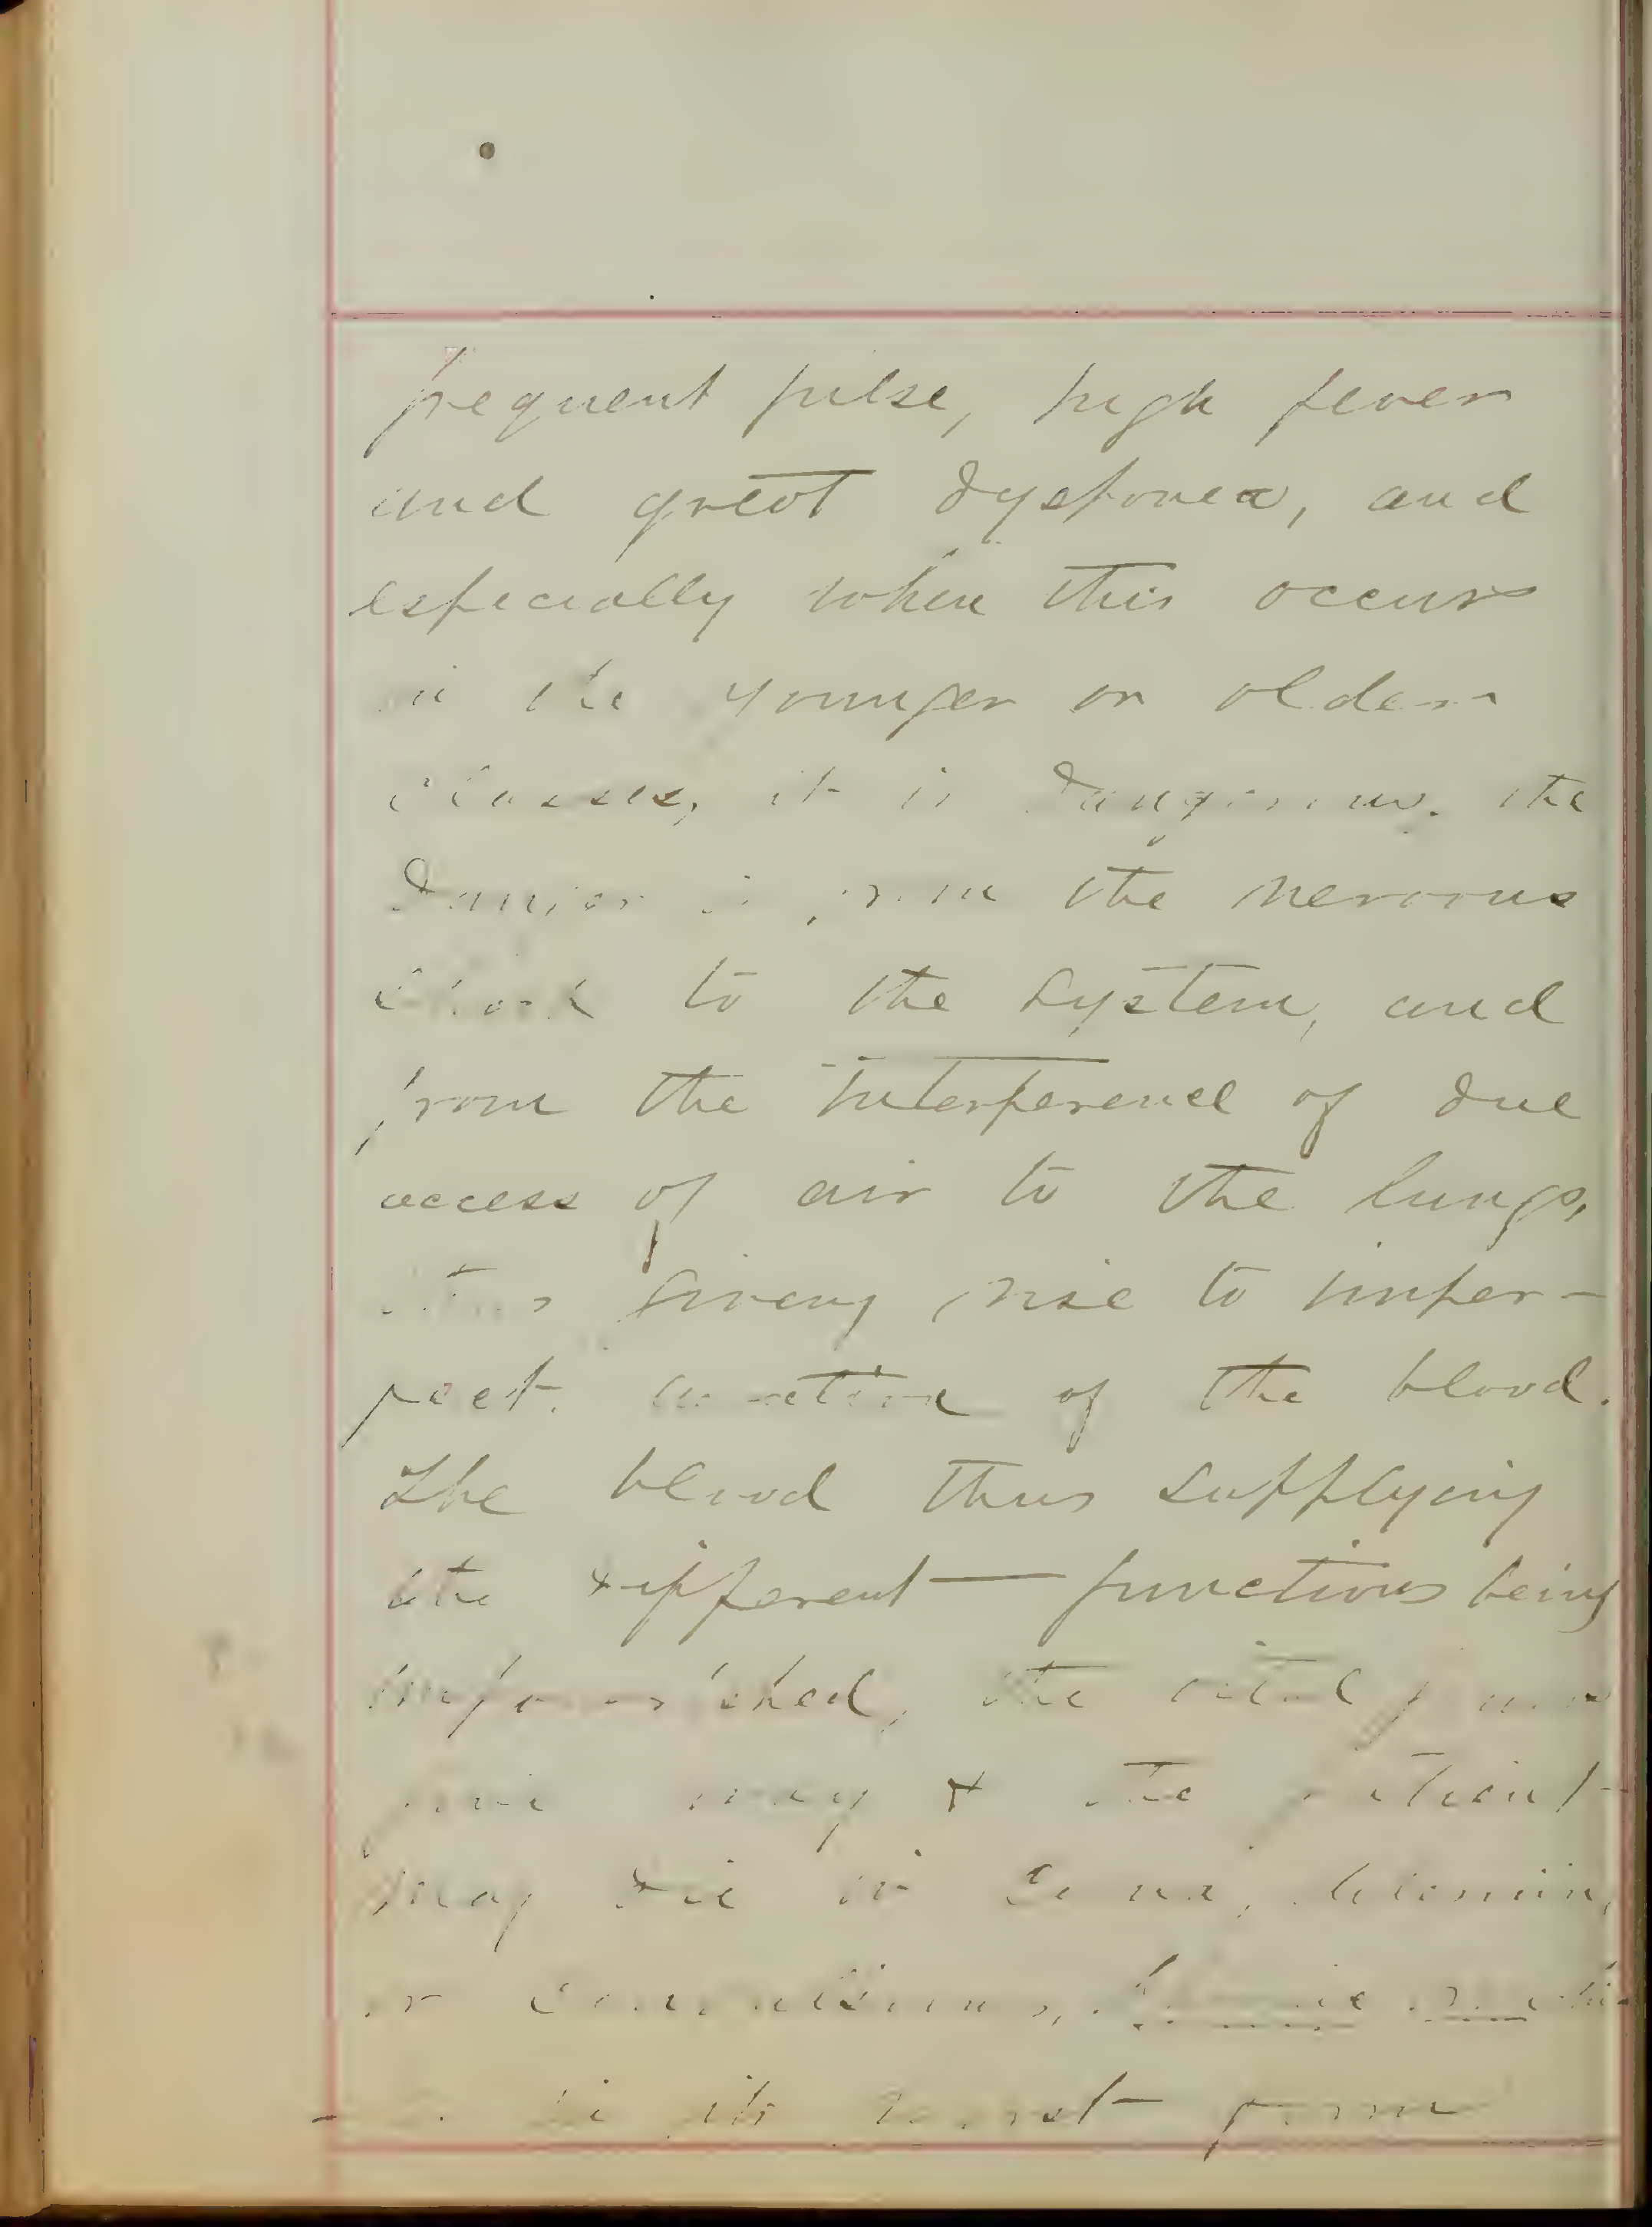 frequent pulse, high fever
and great dyspnoea, and
especially when this occurs
in the younger or older
classes, it is dangerous. the
danger is from the nervous
shock to the system, and
from the interference of due
access of air to the lungs,
thus giving rise to imper-
fect aeration of the blood.
The blood thus supplying
the different functions being
impoverished, the vital
give way & the patient
may die in coma,
or convulsions,
in its worst form